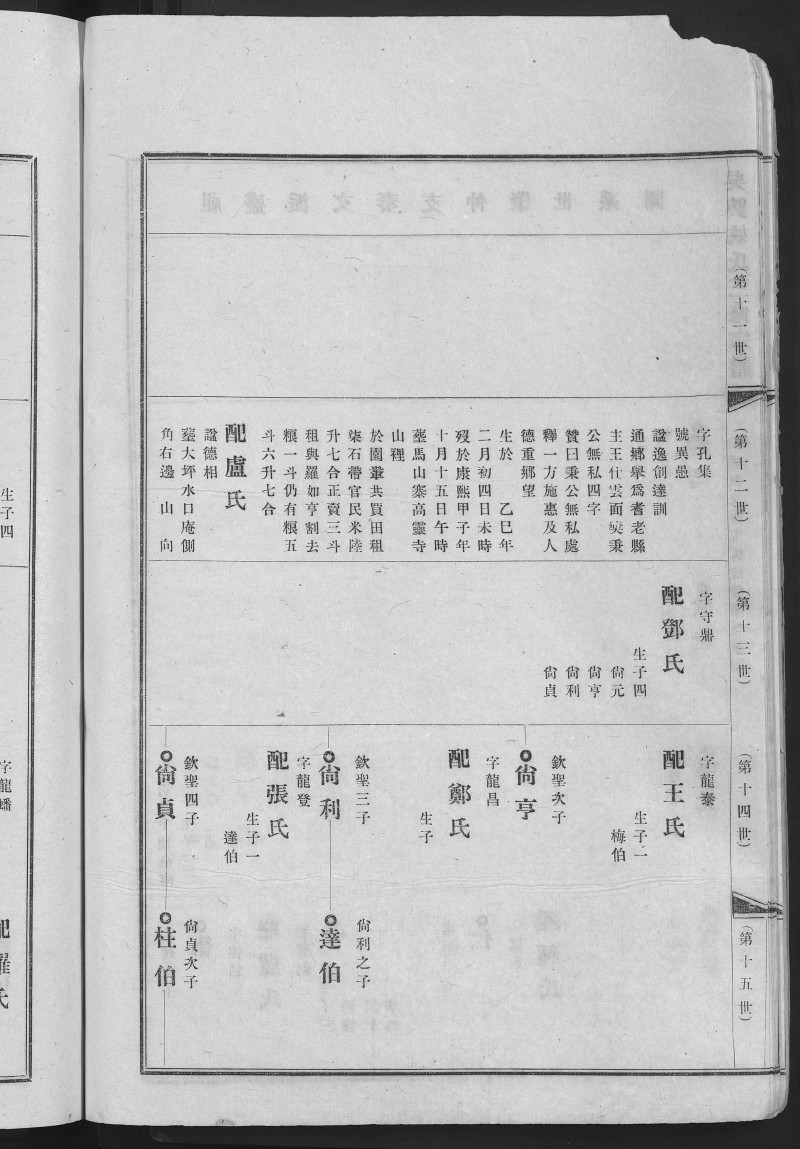 (第十一世)
(第十二世)
字孔集
號異愚
諡逸創達訓
通鄉舉爲耆老縣
主王仕雲面奬秉
公無私四字
贊曰秉公無私處
釋一方施惠及人
德重鄉望
生於 乙巳年
二月初四日未時
歿於康熙甲子年
十月十五日午時
塟馬山寨高靈寺
山裡
於園輋共買田租
柒石帶官民米陸
升七合正賣三斗
租與羅如亨割去
粮一斗仍有粮五
斗六升七合
配盧氏
諡德相
塟大坪水口庵側
角右邊 山 向
(第十三世)
字守鼎
配鄧氏
生子四
尙元
尙亨
尙利
尙貞
(第十四世)
字龍泰
配王氏
生子一
梅伯
欽聖次子
尙亨
字龍昌
配鄭氏
生子
欽聖三子
尙利
字龍登
配張氏
生子一
達伯
欽聖四子
尙貞
(第十五世)
尙利之子
達伯
尙貞次子
柱伯
生子四
字龍蟠
配羅氏